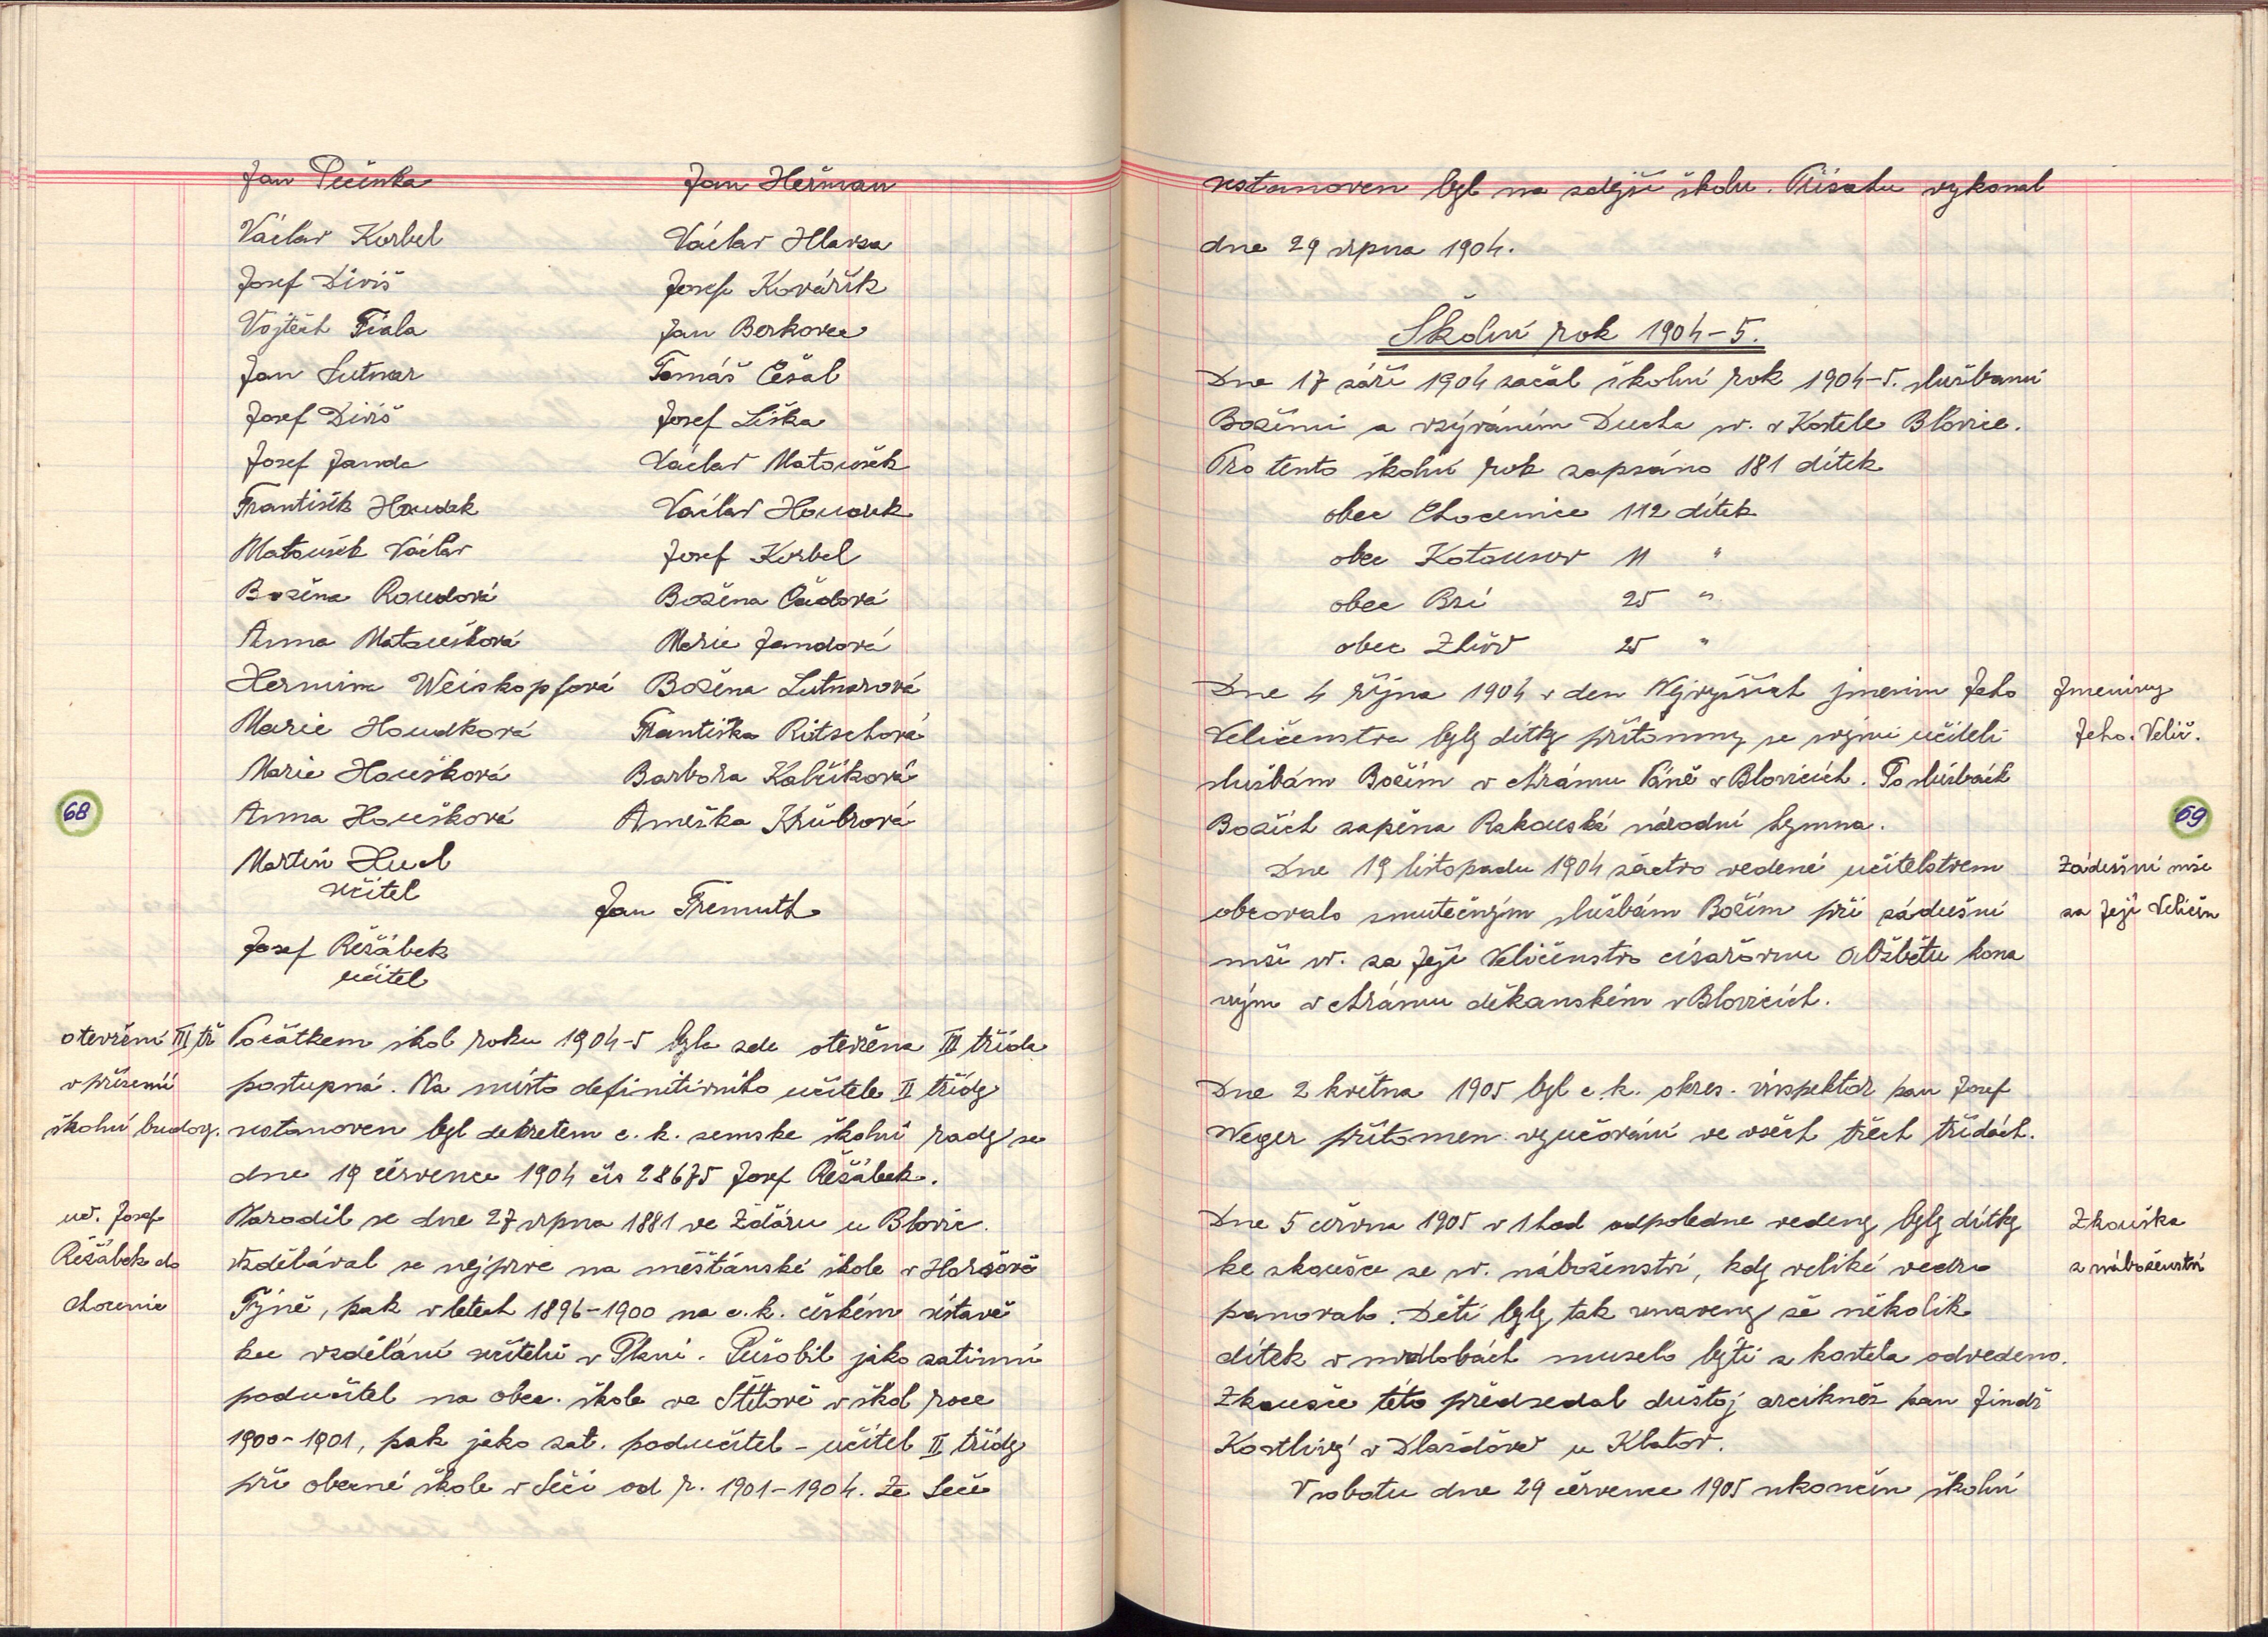 Jan Pečinka Jan Heřman
Václav Korbel Václav Hlavsa
Josef Diviš Josef Kovářík
Vojtěch Fiala Jan Berkovec
Jan Lutnar Tomáš Češal
Josef Diviš Josef Liška
Josef Janda Václav Matoušek
František Houdek Václav Houdek
Matoušek Václav Josef Korbel
Božena Roudová Božena Čadová
Anna Matoušková Marie Jandová
Hermina Weiskopfová Božena Lutnarová
Marie Houdková Františka Ritschová
Marie Houšková Barbora Kabzíková
68 Anna Houšková Anežka Krůbrová
Martin Hucl
učitel
Jan Fremuth
Josef Řeřábek
učitel
otevření III tř Počátkem škol roku 1904-5 byla zde otevřena III třída
v přízemí postupná. Na místo definitivního učitele II třídy
školní budovy. ustanoven byl dekretem c. k. zemske školní rady ze
dne 19 července 1904 čís 28675 Josef Řeřábek.
uč. Josef Narodil se dne 27 srpna 1881 ve Žďáru u Blovic.
Řeřábek do Vzdělával se nejprve na měšťánské škole v Horšově
chocenic Týně, pak v letech 1896-1900 na c. k. českém ústavě
ku vzdělání učitelů v Plzni. Působil jako zatimní
podučitel na obec. škole ve Štítově v škol roce
1900-1901, pak jako zat. podučitel - učitel II třídy
při obecné škole v Seči od r. 1901-1904. Ze Seče
ustanoven byl na zdejší školu. Přísahu vykonal
dne 29 srpna 1904.
Školní rok 1904-5.
Dne 17 září 1904 začal školní rok 1904-5. službami
Božími a vzýváním Ducha sv. v Kostele Blovice.
Pro tento školní rok zapsáno 181 dítek
obec Chocenice 112 dítek
obec Kotousov 11 "
obec Bzí 25 "
obec Zhůř 25 "
Dne 4 října 1904 v den Nejvyšších jmenin Jeho Jmeniny
Veličenstva byly dítky přítomny se svými učiteli Jeho. Velič.
službám Božím v chrámu Páně v Blovicích. Po službách
Božích zapěna Rakouská národní hymna. 69
Dne 19 listopadu 1904 žactvo vedené učitelstvem Zádušní mše
obcovalo smutečným službám Božím při zádušní za Její Veličen
mši sv. za Její Veličenstvo císařovnu Alžbětu kona
ným v chrámu děkanském v Blovicích.
Dne 2 května 1905 byl c. k. okres. inspektor pan Josef
Weger přítomen vyučování ve všech třech třídách.
Dne 5 června 1905 v 1 hod odpoledne vedeny byly dítky Zkouška
ke zkoušce ze sv. náboženství, kdy veliké vedro z náboženství
panovalo. Děti byly tak unaveny že několik
dítek v mdlobách muselo býti z kostela odvedeno.
Zkoušce této předsedal důstoj arcikněz pan Jindř
Kostlivý v Dlažďově u Klatov.
V sobotu dne 29 července 1905 ukončen školní